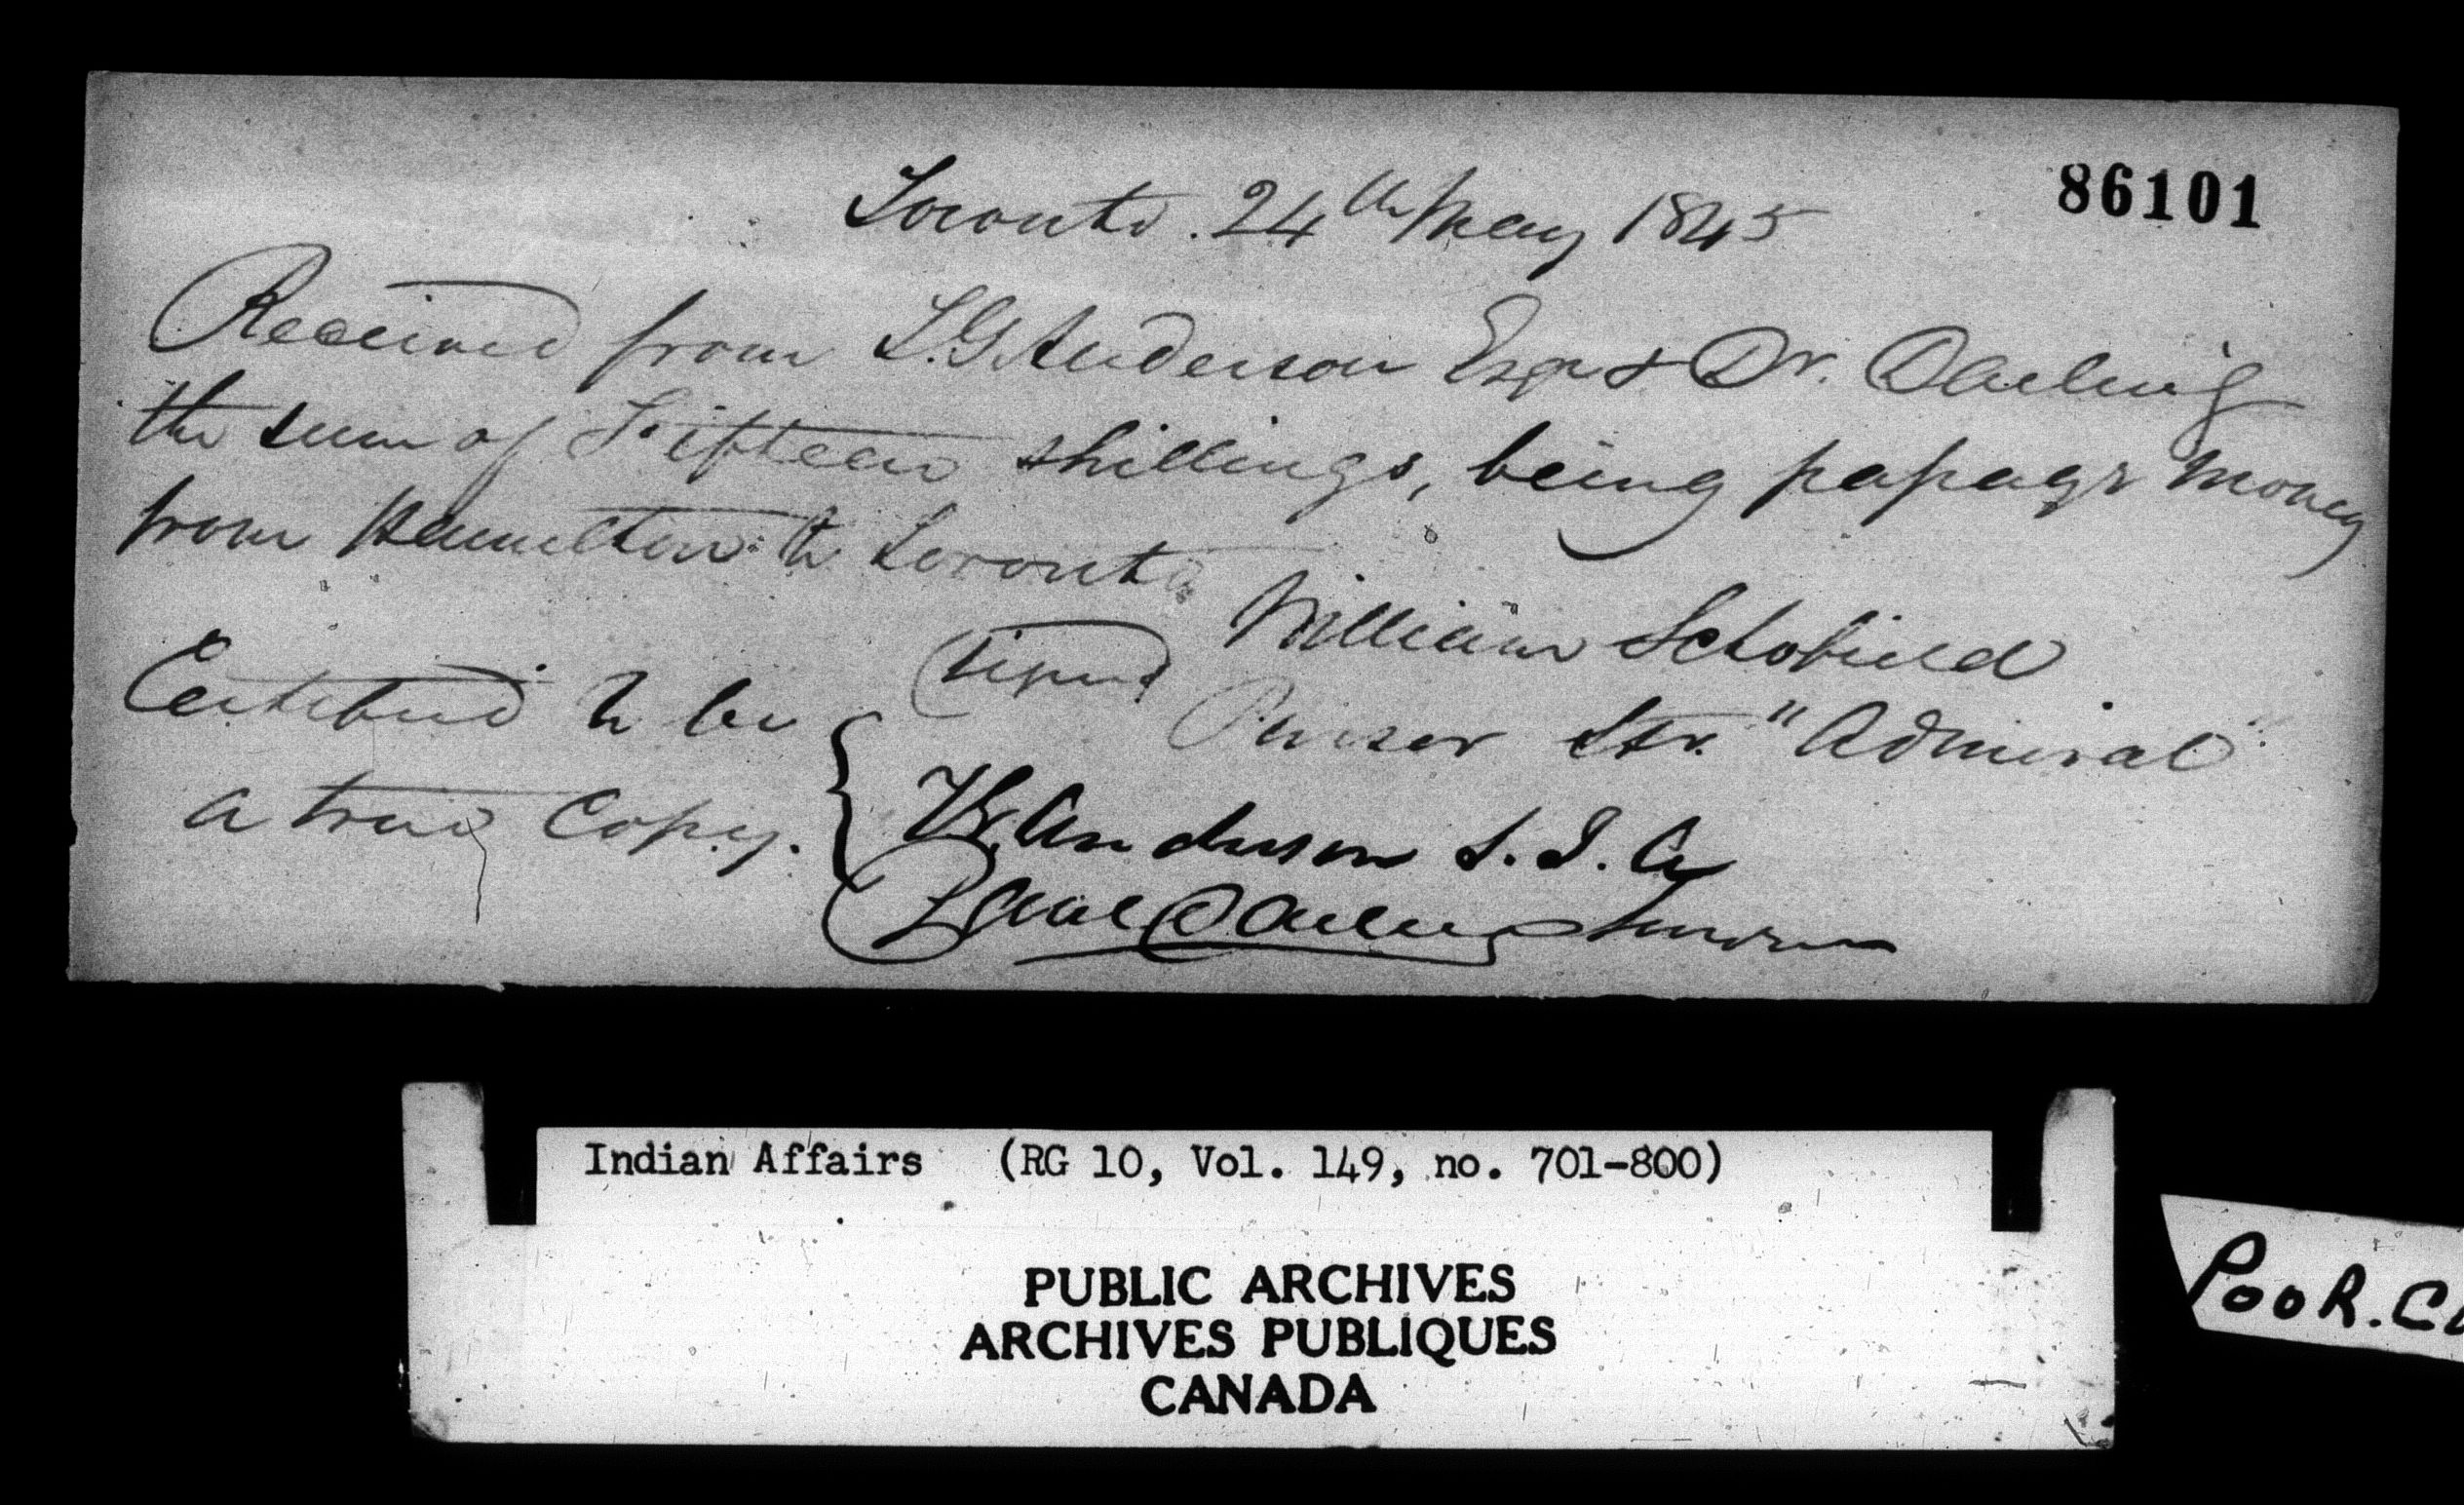 86101
Toronto. 24th May 1845
Received from T.G. Anderson Esqr & Dr. Darling
the sum of Fifteen shillings, being passage money
from Hamilton to Toronto
(signed William Schofield
Purser Str. "Admiral"
Certified to be
a true Copy.
TG Anderson S.I.A
Darling Surgeon
Indian Affairs (RG 10, Vol. 149, no. 701-800)
PUBLIC ARCHIVES
ARCHIVES PUBLIQUES
CANADA
POOR.